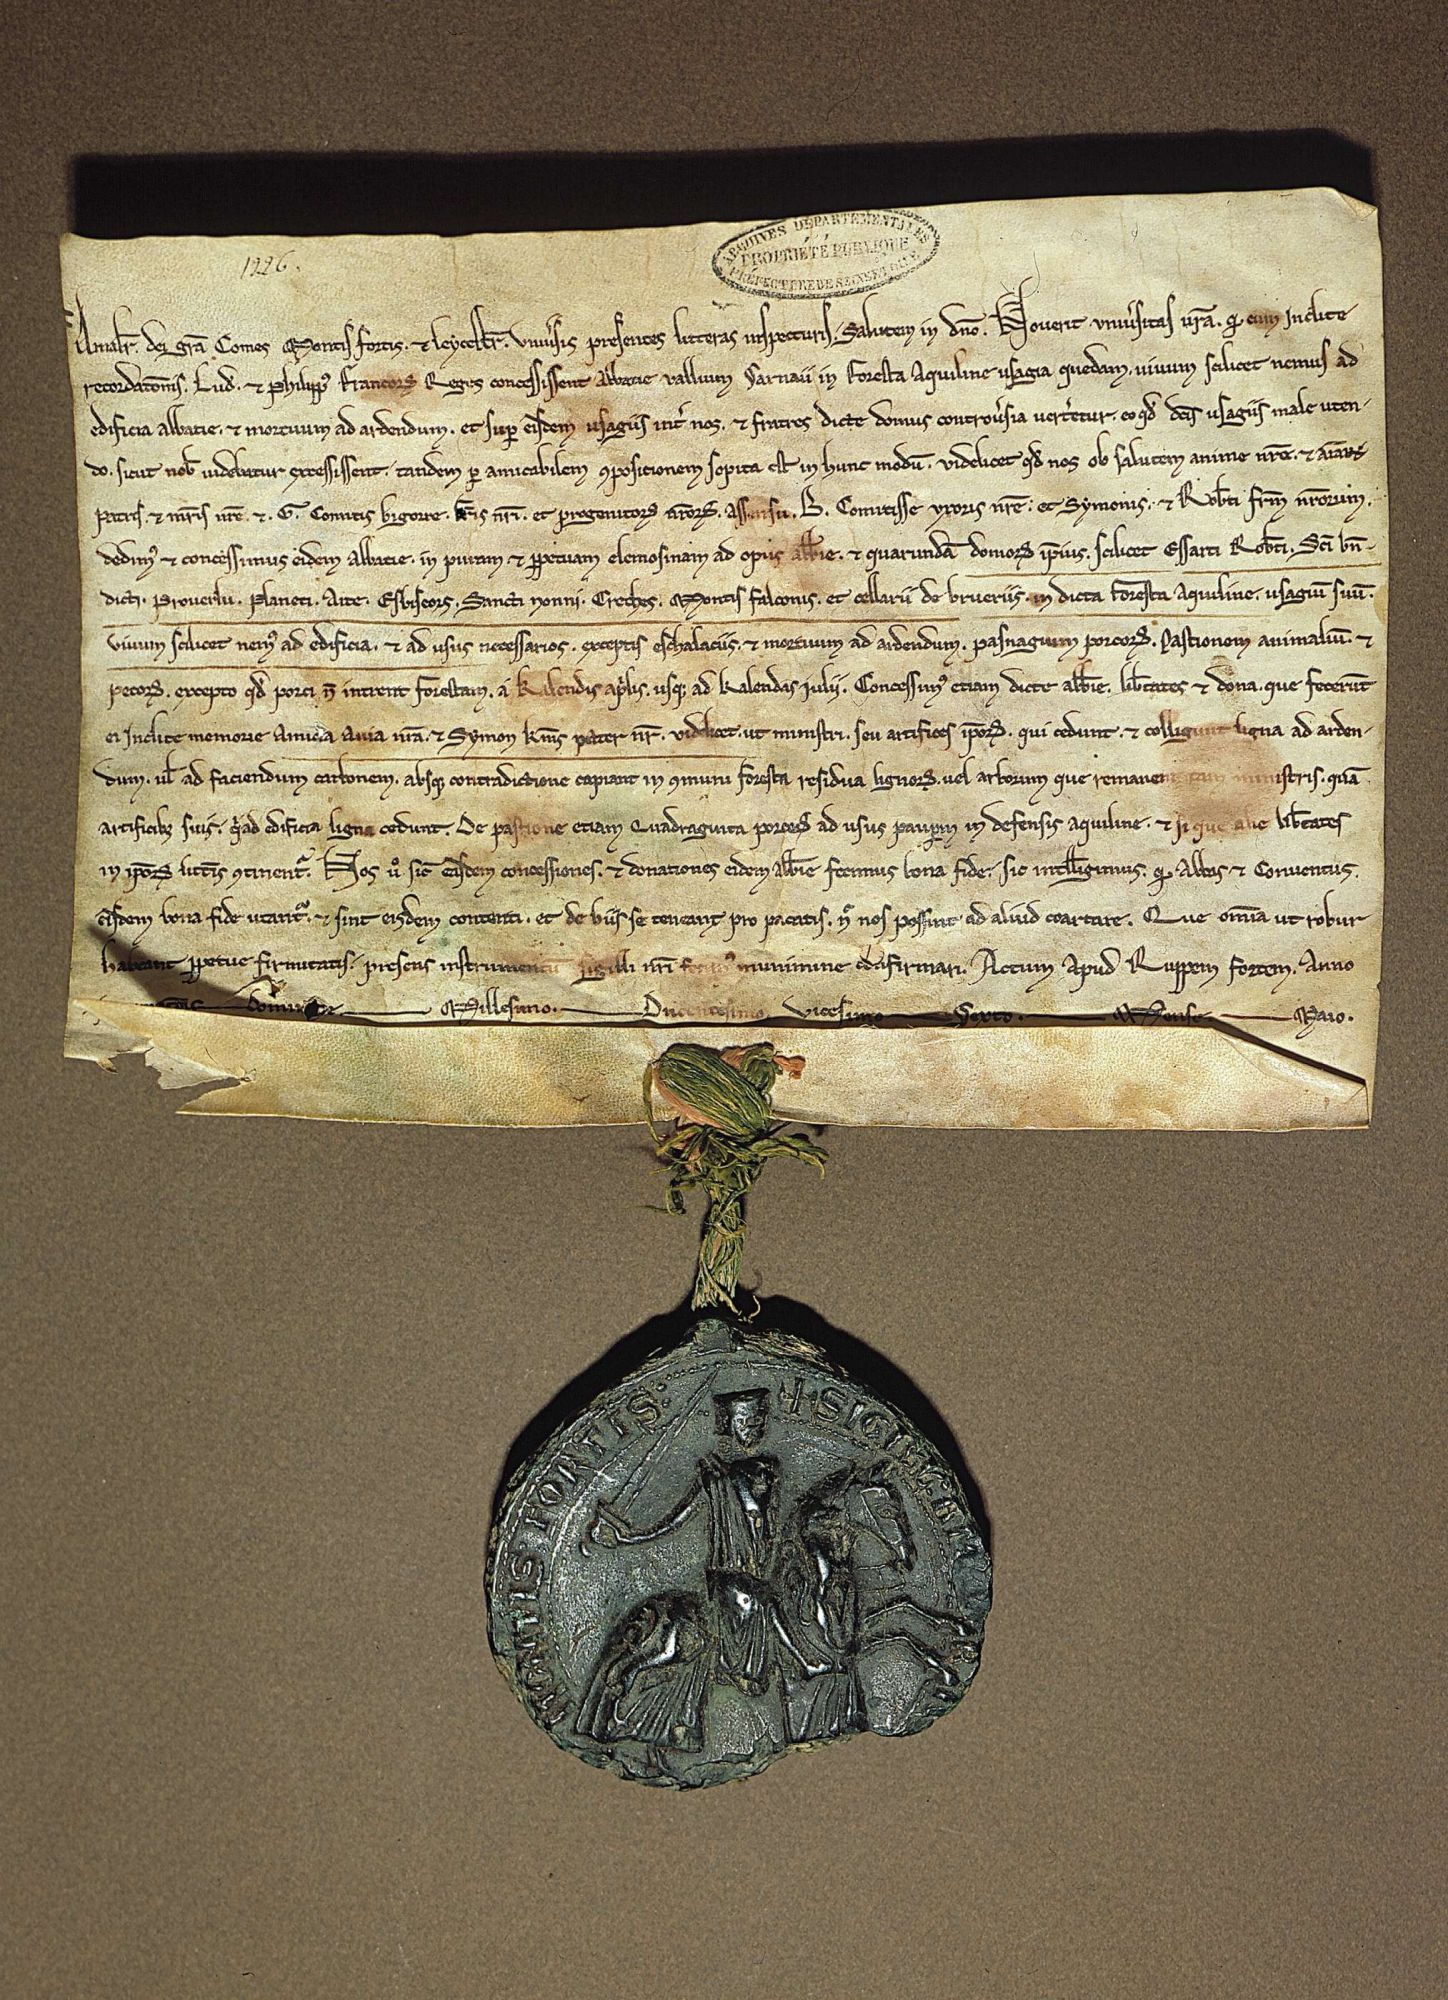 1226.
ARCHIVES DÉPARTEMENTALES
PROPRIÉTÉ PUBLIQUE
PRÉFECTURE DE SEINE ET OISE
Amalr. dei gr̄a Comes Montis fortis. & leycestr̄. Vniu̓sis presentes litteras inspecturis. Salutem in dn̄o. Nouerit vniu̓sitas ur̄a. ꝙ cum Inclite
recordatōnis. Lud. & Philipp᷒ Francorꝝ Reges concessissent Abbatie vallium Sarnaii in foresta Aquiline usagia quedam. uiuum scilicet nemus ad
edificia abbatie. & mortuum ad ardendum. et suꝑ eisdem usagiis int̓ nos. & fratres dicte domus controu̓sia uert̓etur. eo qd̓ dc̄is usagiis male uten-
do. sicut nob̄ uidebatur excessissent. tandem ꝑ amicabilem ꝯpositionem sopita est in hunc modū. videlicet qd̓ nos ob salutem anime nr̄e. & aīarꝝ
Patris. & mr̄is nr̄e. &. G. Comitis bigorre. fr̄is nr̄i. et progenitorꝝ nr̄orꝝ. assensu. B. Comitisse vxoris nr̄e. et Symonis. & Rob̄ti fr̄m nr̄orum.
dedim᷒ & concessimus eidem abbatie. in puram & ꝑpetuam elemosinam ad opus abb̄ie. & quarundā domorꝝ ip̄ius. scilicet Essarti Rob̄ti. Sc̄i bn̄-
dicti. Prouerlu. Planeti. Aite. Esbiscors. Sancti nonni. Creches. Montis falconis. et cellarii de brueriis. in dicta foresta Aquiline. usagiū suū.
viuum scilicet nem᷒ ad edificia. & ad usus necessarios. exceptis eschalaciis. & mortuum ad ardendum. pasnagium porcorꝝ. Pastionem animaliū. &
pecorꝝ. excepto qd̓ porci nō intrent forestam. a Kalendis ap̓lis. usqꝫ ad kalendas Julij. Concessim᷒ etiam dicte abb̄ie. lib̄tates & dona. que fecerūt
ei Inclite memorie Amicia Auia nr̄a. & Symon km̄s pater nr̄. videlicet. ut ministri. seu artifices ip̄orꝝ. qui cedunt. & colligunt ligna ad arden-
dum. ul̄ ad faciendum carbonem. absqꝫ contradictione capiant in ꝯmuni foresta residua lignorꝝ. uel arborum que remanent tam ministris. quā
artificibꝫ suis. q̓ ad edificia ligna cedunt. De pastione etiam Quadraginta porcorꝝ ad usus pauꝑum in defensis aquiline. & si que alie lib̄tates
in ip̄orꝝ litt̓is ꝯtinent̓. Nos u̓ sic̄ eisdem concessiones. & donationes eidem abb̄ie fecimus bona fide. sic intelligimus. ꝙ Abbas & Conuentus.
eisdem bona fide utant̓. & sint eisdem contenti. et de hiis se teneant pro pacatis. n̄ nos possint ad aliud coartare. Que om̄ia ut robur
habeant ꝑpetue firmitatis. presens instrumentū sigilli nr̄i munimine confirmari. Actum Apud Ruppem fortem. Anno
Domini Millesimo. Ducentesimo. vicesimo Sexto. Mense Maio.
+ SIGILL: AM
MONTIS FORTIS: